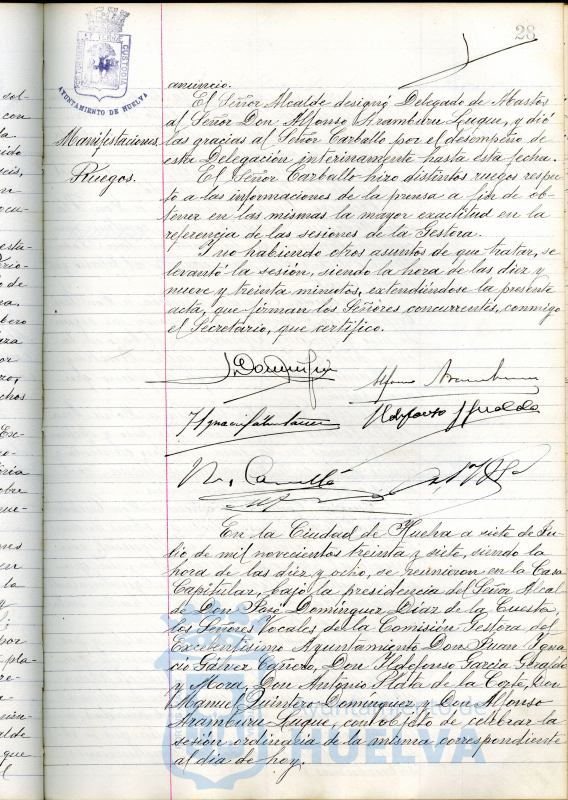 28
AYUNTAMIENTO DE HUELVA
anuncio.
El Señor Alcalde designó Delegado de Abastos
al Señor Don Alfonso Aramburu Luque, y dió
Manifestaciones
las gracias al Señor Carballo por el desempeño de
esta Delegación interinamente hasta esta fecha.
Ruegos.
El Señor Carballo hizo distintos ruegos respec-
to a las informaciones de la prensa a fin de ob-
tener en las mismas la mayor exactitud en la
referencia de las sesiones de la Gestora.
Y no habiendo otros asuntos de que tratar, se
levantó la sesión, siendo la hora de las diez y
nueve y treinta minutos, extendiéndose la presente
acta, que firman los Señores concurrentes, conmigo
el Secretario, que certifico.
Alfonso Aramburu
Ildefonso Giraldo
En la Ciudad de Huelva a siete de Ju-
lio de mil novecientos treinta y siete, siendo la
hora de las diez y ocho, se reunieron en la Casa
Capitular, bajo la presidencia del Señor Alcal-
de Don José Domínguez Díaz de la Cuesta,
los Señores Vocales de la Comisión Gestora del
Excelentísimo Ayuntamiento Don Juan Igna-
cio Gálvez Cañero, Don Ildefonso García Giraldo
y Mora, Don Antonio Plata de la Corte, Don
Manuel Quintero Domínguez y Don Alfonso
Aramburu Luque, con objeto de celebrar la
sesión ordinaria de la misma, correspondiente
al día de hoy.
Ayuntamiento de
HUELVA